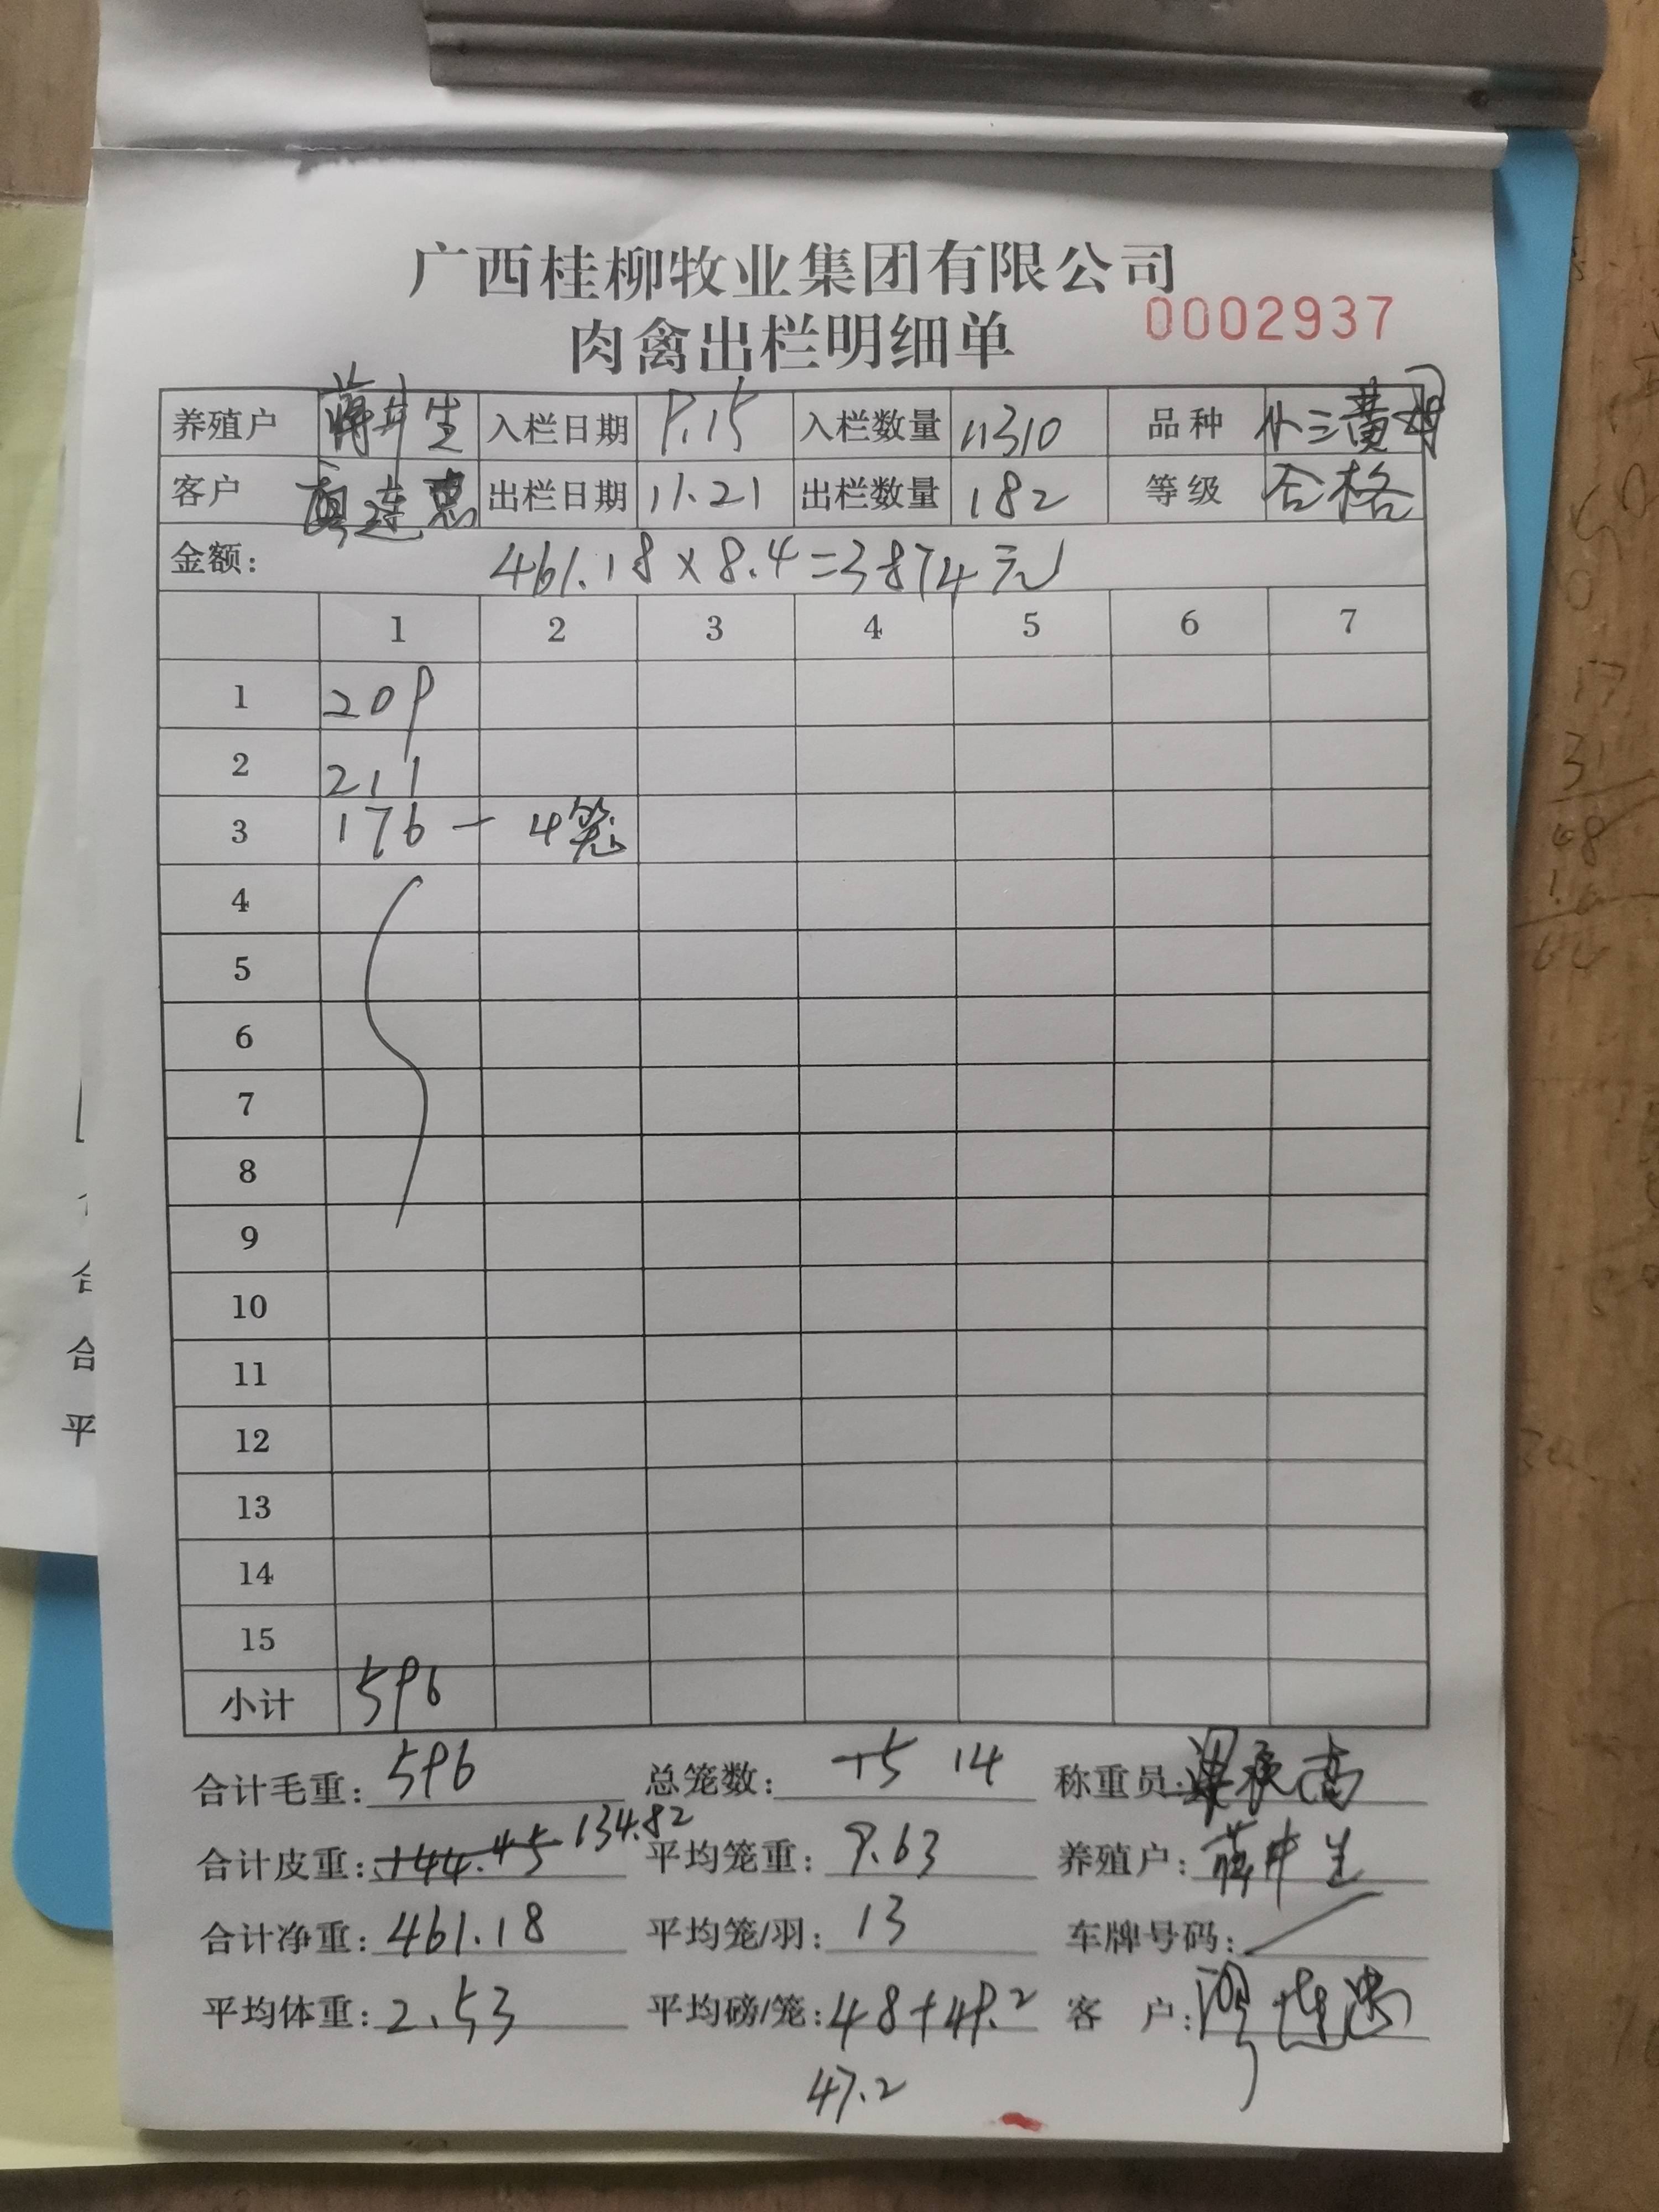 广西桂柳牧业集团有限公司
肉禽出栏明细单 0002937
养殖户 蒋井生 入栏日期 9.15 入栏数量 11310 品种 小三黄母
客户 连 出栏日期 11.21 出栏数量 182 等级 合格
金额: 461.18×8.4=3874元
1 2 3 4 5 6 7
1 209
2 211
3 176 - 4笼
4
5
6
7
8
9
10
11
12
13
14
15
小计 596
合计毛重: 596 总笼数: 15 14 称重员:
合计皮重: 144.45 134.82 平均笼重: 9.63 养殖户: 蒋井生
合计净重: 461.18 平均笼/羽: 13 车牌号码: /
平均体重: 2.53 平均磅/笼: 48+49.2 客 户:
47.2
合
合
平